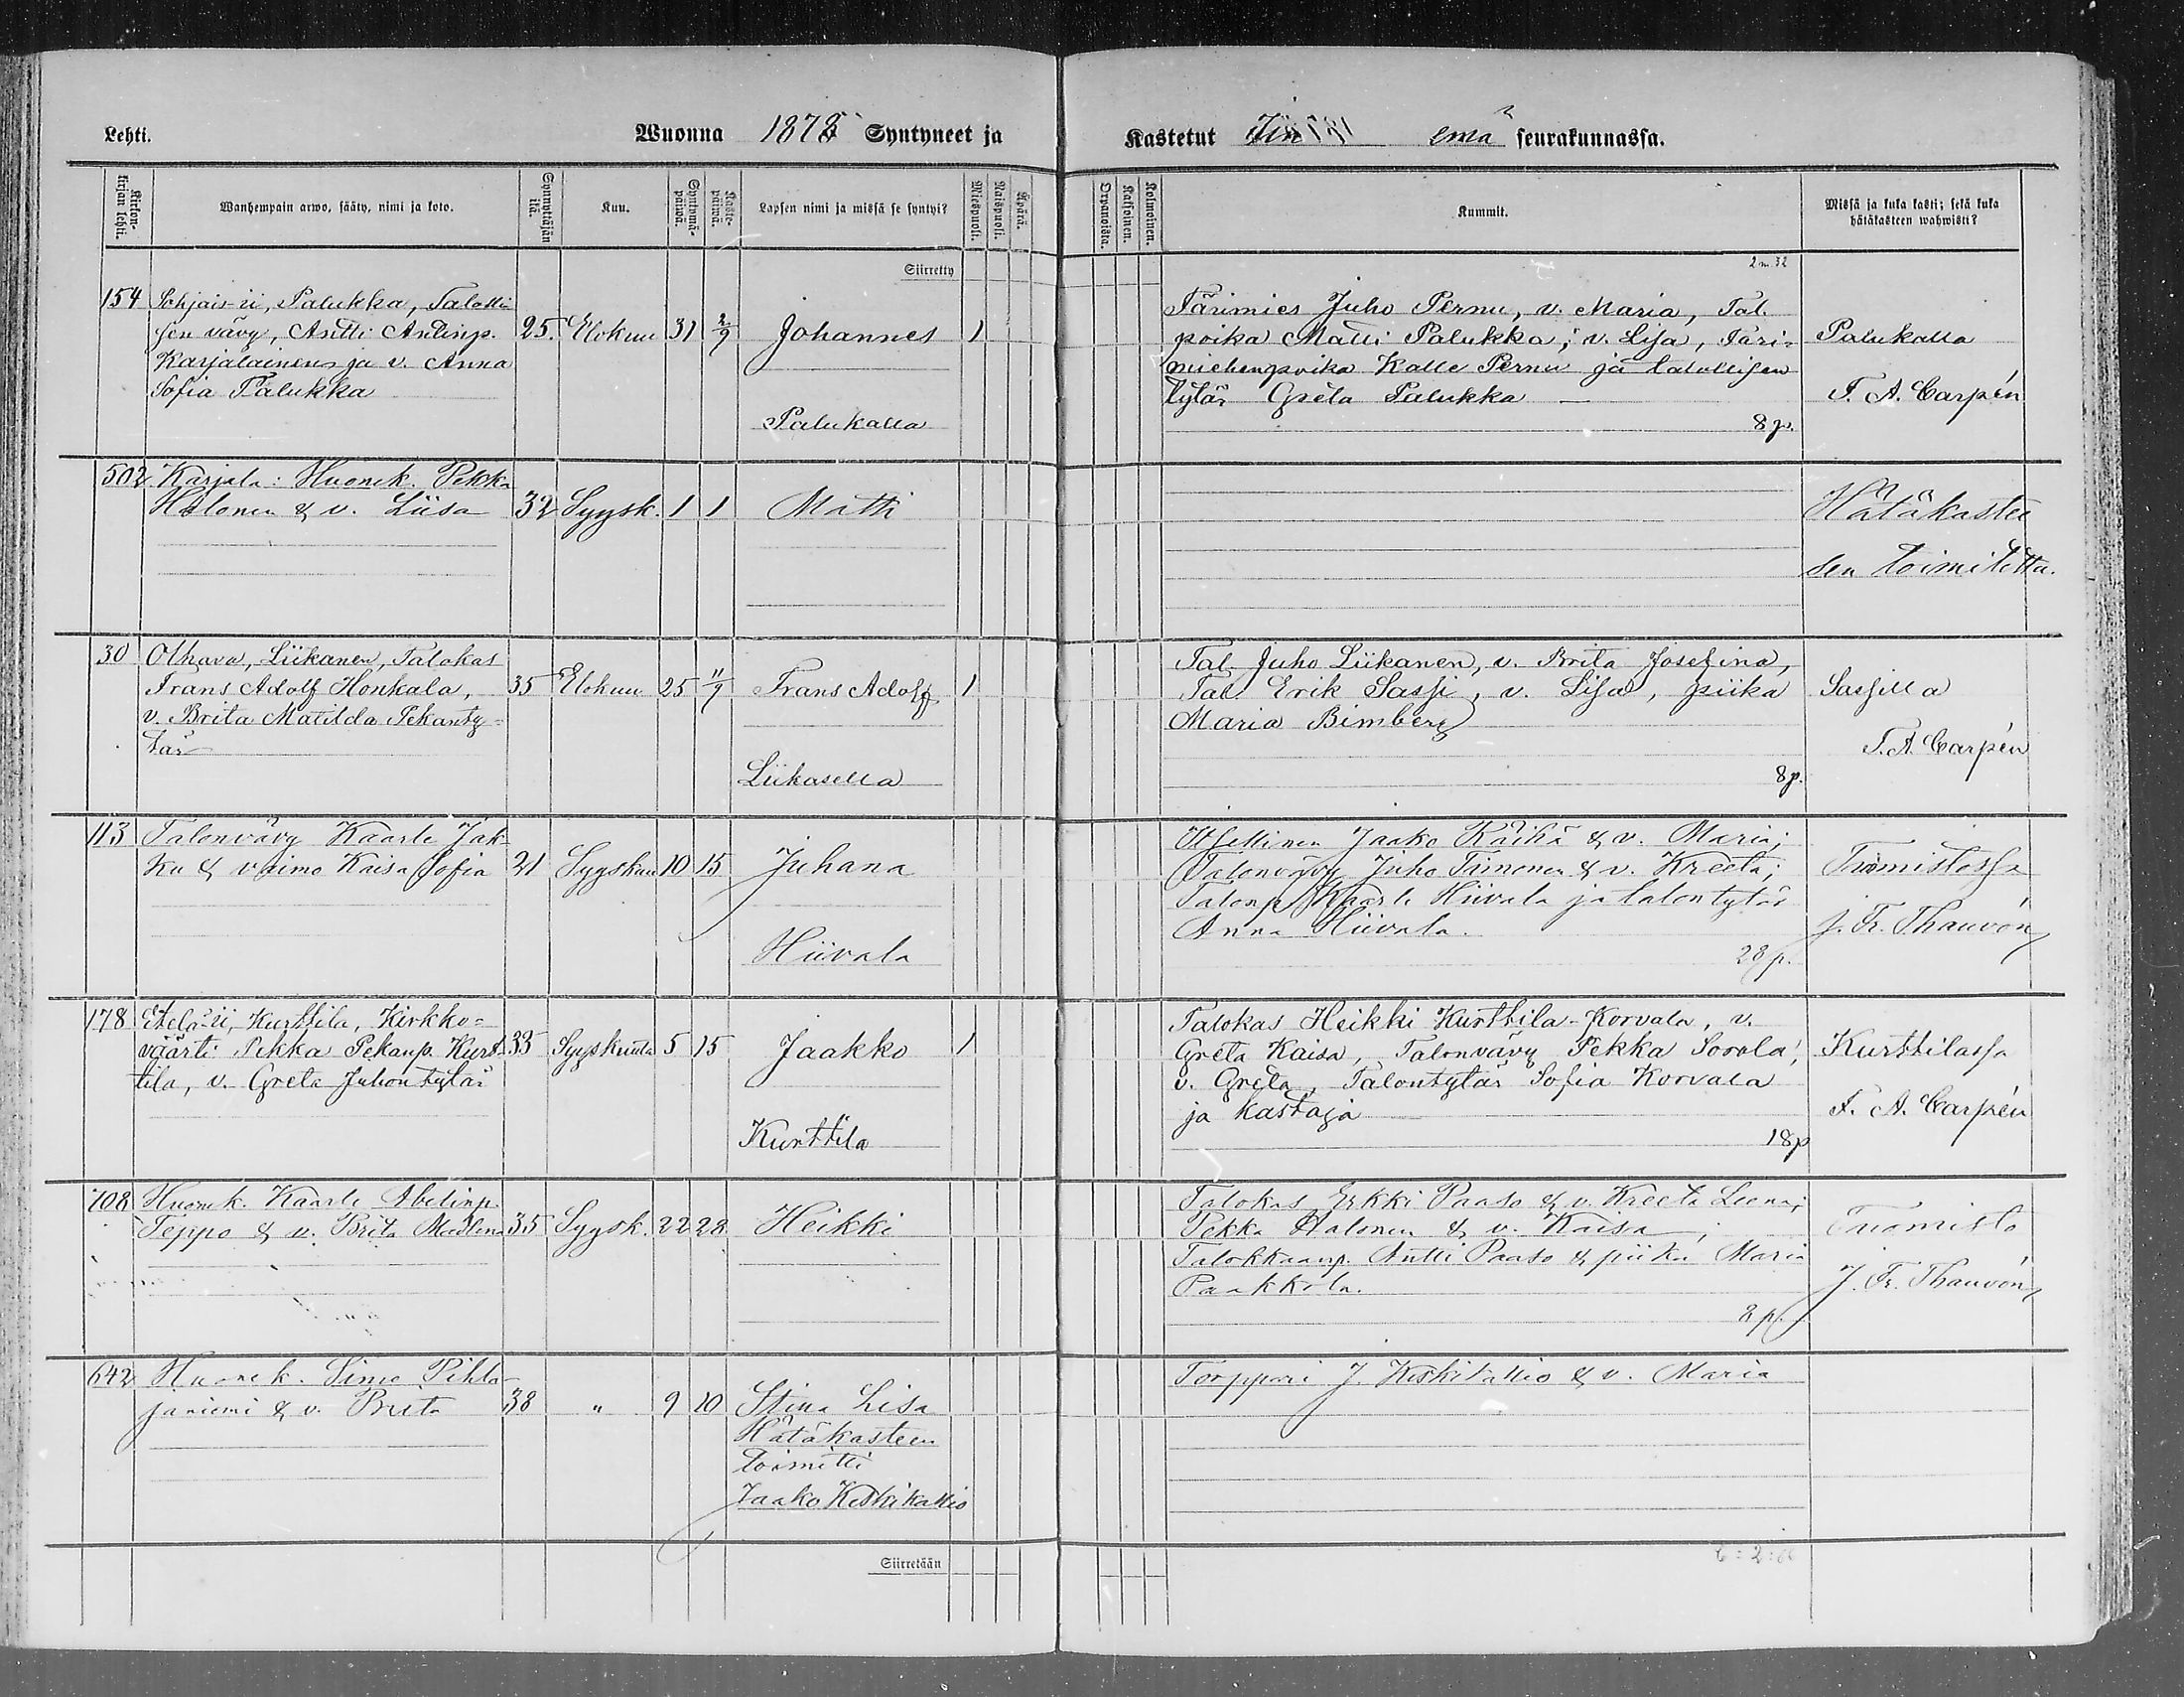 Lehti.
Wuonna 1878 Syntyneet ja
Kastetut Iin emä seurakunnassa.
Kirkonkirjan lehti.
Wanhempain arwo, sääty, nimi ja koto.
Synnyttäjän ikä.
Kuu.
Syntymäpäivä.
Kastepäivä.
Lapsen nimi ja missä se syntyi?
Miespuoli.
Naispuoli.
Koko.
Orvanoista.
Kaksoinen.
Kolmoinen.
Kummit.
Missä ja kuka kasti; sekä kuka
hätäkasteen wahwisti?
Siirretty
154 Pohjais-ii, Palukka, Talolli-
sen vävy, Antti Antinp. 25. Elokuu 31 2/9 Johannes 1
Karjalainen ja v. Anna
Sofia Palukka
Palukalla
Färimies Juho Pernu, v. Maria, Tal.
poika Matti Palukka, v. Lisa, Färi-
miehenpoika Kalle Pernu ja talollisen
tytär Greta Palukka
8 p.
Palukalla
F. A. Carpén
502 Karjala: Huonek. Pekka
Halonen & v. Liisa 32 Syysk. 1 1 Matti
Hätäkastee
sen toimitettu.
30 Olhava, Liikanen, Talokas
Frans Adolf Honkala, 35 Elokuu 25 11/9 Frans Adolf 1
v. Brita Matilda Pekanty-
tär
Liikasella
Tal. Juho Liikanen, v. Brita Josefina,
Tal. Erik Sassi, v. Lisa, piika
Maria Bimberg
8 p.
Sassilla
F. A. Carpén
113 Talonvävy Kaarle Jak-
ku & vaimo Kaisa Sofia 21 Syyskuu 10 15 Juhana
Hiivala
Itsellinen Jaako Räihä & v. Maria;
Talonvävy Juho Timonen & v. Kreeta;
Talonp. Kaarle Hiivala ja talontytär
Anna Hiivala.
28 p.
Tuomistossa
J. Fr. Thauvón
178 Etelä-ii, Kurttila, Kirkko-
väärti Pekka Pekanp. Kurt- 33 Syyskuuta 5 15 Jaakko 1
tila, v. Greta Juhontytär
Kurttila
Talokas Heikki Kurttila-Korvala, v.
Greta Kaisa, Talonvävy Pekka Sorola,
v. Greta, Talontytär Sofia Korvala
ja kastaja
18 p
Kurttilassa
F. A. Carpén
108 Huonek. Kaarle Abelinp.
Teppo & v. Brita Madlena 35 Syysk. 22 28 Heikki
Talokas Erkki Paaso & v. Kreeta Leena;
Pekka Halonen & v. Kaisa;
Talokkaanp. Antti Paaso & piika Maria
Paakkola.
8 p.
Tuomisto
J. Fr. Thauvón
642 Huonek. Simo Pihla-
janiemi & v. Brita 38 " 9 10 Stina Lisa
Hätäkasteen
toimitti
Jaako Keskikallio
Torppari J. Keskitallio & v. Maria
Siirretään